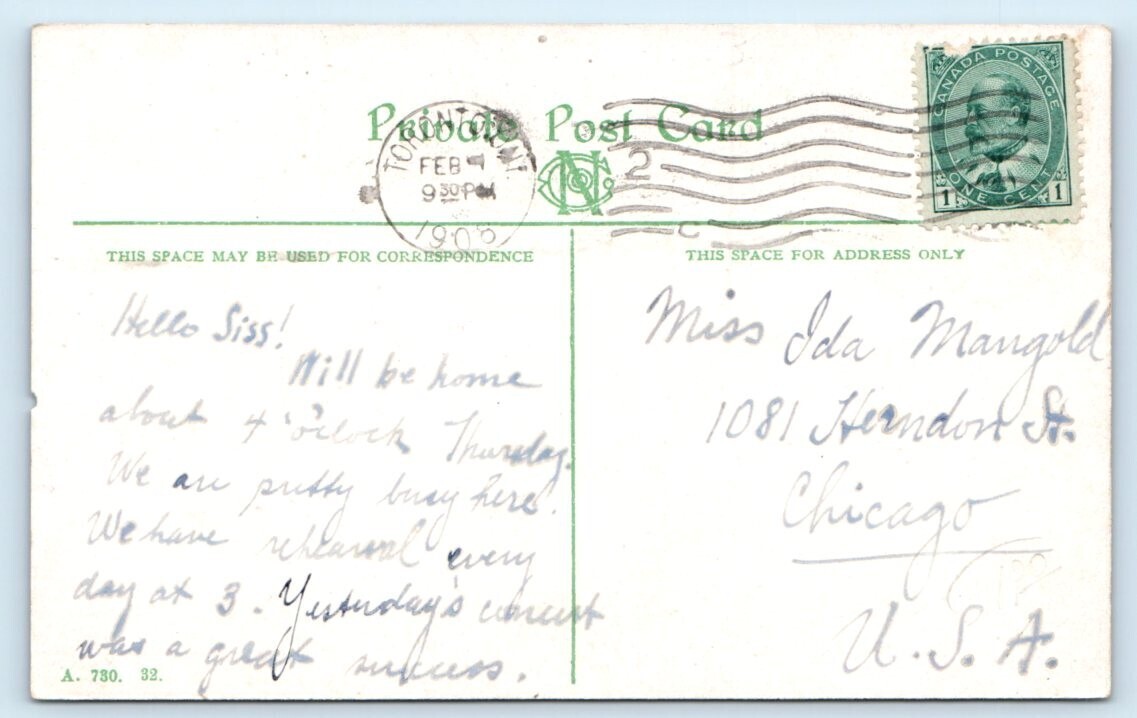 Private Post Card
TORONTO, ONT
FEB 4
9 30 PM
190
2
C
CANADA POSTAGE
ONE CENT
1 1
THIS SPACE MAY BE USED FOR CORRESPONDENCE
THIS SPACE FOR ADDRESS ONLY
Hello Siss!
Will be home
about 4 o'clock Thursday.
We are pretty busy here.
We have rehearsal every
day at 3. Yesterday's concert
was a great success.
A. 730. 32.
Miss Ida Mangold
1081 Herndon St.
Chicago
U.S.A.